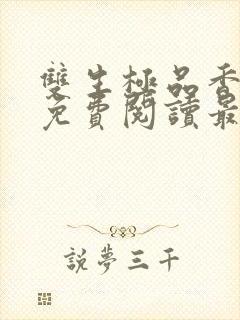 雙生極品香
免費閱讀最
說夢三千